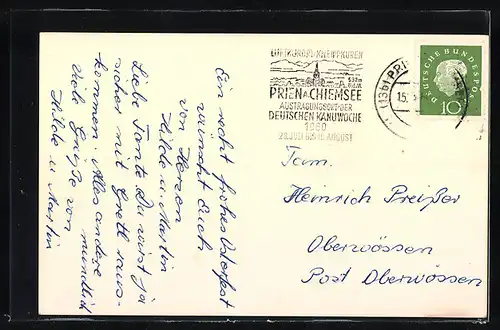 Ein recht frohes Osterfest
wünscht Euch
von Herzen
Hilde u Martin
Liebe Tante Du wirst ja
sicher mit Gretl raus-
kommen. Alles andere
mündlich
Viele Grüße von
Hilde u Martin
LUFTKURORT-KNEIPPKUREN
532m
PRIEN A. CHIEMSEE
AUSTRAGUNGSORT DER
DEUTSCHEN KANUWOCHE
1960
AUGUST
(13b) PRIEN
15.
DEUTSCHE BUNDESPOST
10
Fam.
Heinrich Preißer
Oberwössen
Post Oberwössen